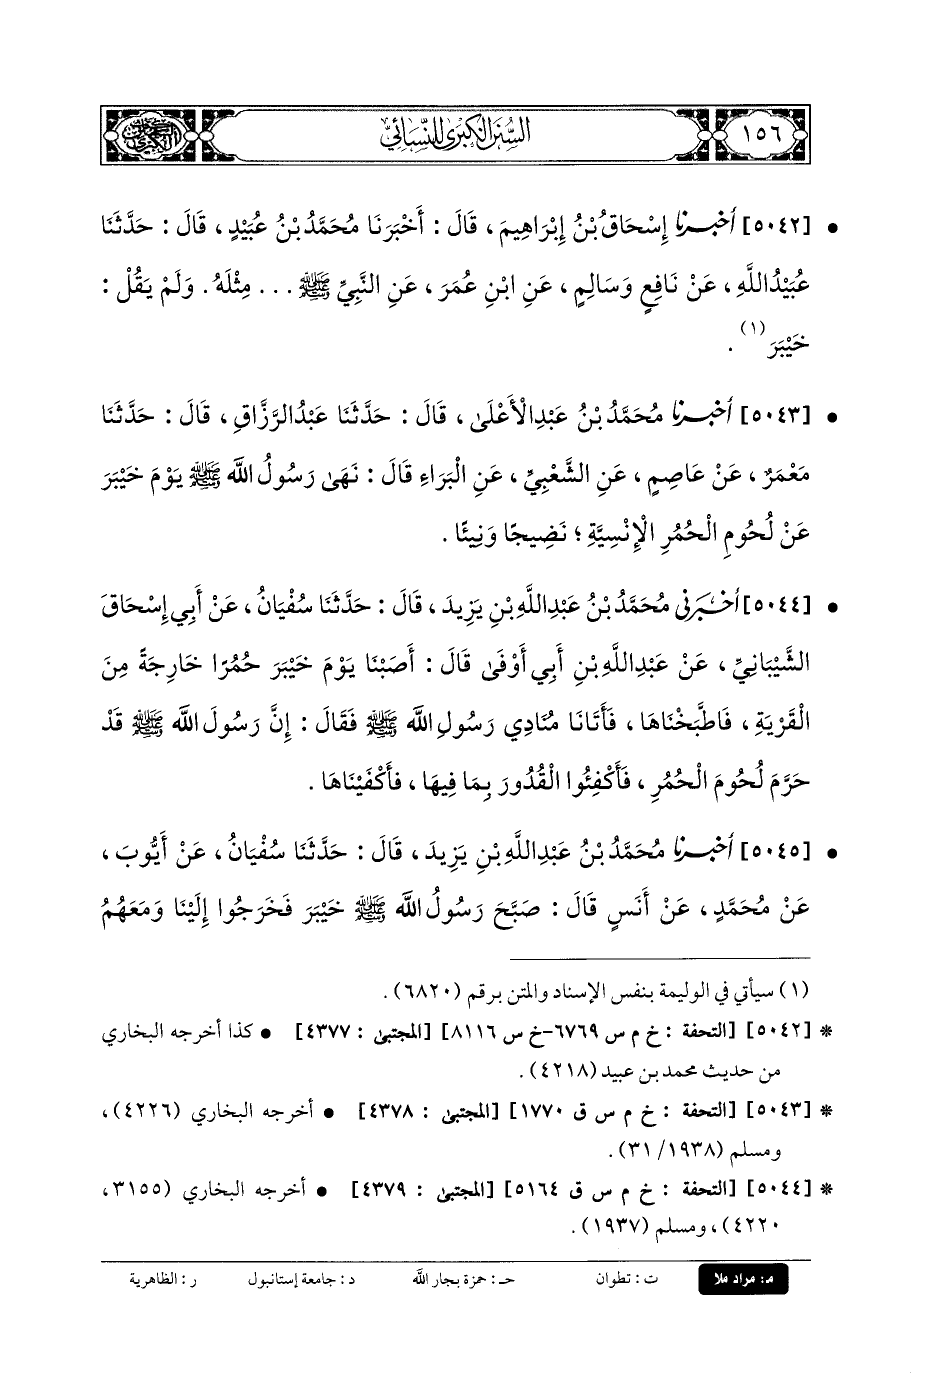 ١٥٦
السُّنَنُ الكُبْرَى لِلنَّسَائِيِّ
• [٥٠٤٢] أَخْبَرَنَا إِسْحَاقُ بْنُ إِبْرَاهِيمَ، قَالَ: أَخْبَرَنَا مُحَمَّدُ بْنُ عُبَيْدٍ، قَالَ: حَدَّثَنَا
عُبَيْدُ اللَّهِ، عَنْ نَافِعٍ وَسَالِمٍ، عَنِ ابْنِ عُمَرَ، عَنِ النَّبِيِّ ﷺ ... مِثْلَهُ. وَلَمْ يَقُلْ:
خَيْبَرَ (١).
• [٥٠٤٣] أَخْبَرَنَا مُحَمَّدُ بْنُ عَبْدِ الْأَعْلَى، قَالَ: حَدَّثَنَا عَبْدُ الرَّزَّاقِ، قَالَ: حَدَّثَنَا
مَعْمَرٌ، عَنْ عَاصِمٍ، عَنِ الشَّعْبِيِّ، عَنِ الْبَرَاءِ قَالَ: نَهَى رَسُولُ اللَّه ﷺ يَوْمَ خَيْبَرَ
عَنْ لُحُومِ الْحُمُرِ الْإِنْسِيَّةِ؛ نَضِيجًا وَنِيئًا.
• [٥٠٤٤] أَخْبَرَنِي مُحَمَّدُ بْنُ عَبْدِ اللَّهِ بْنِ يَزِيدَ، قَالَ: حَدَّثَنَا سُفْيَانُ، عَنْ أَبِي إِسْحَاقَ
الشَّيْبَانِيِّ، عَنْ عَبْدِ اللَّهِ بْنِ أَبِي أَوْفَى قَالَ: أَصَبْنَا يَوْمَ خَيْبَرَ حُمُرًا خَارِجَةً مِنَ
الْقَرْيَةِ، فَاطَّبَخْنَاهَا، فَأَتَانَا مُنَادِي رَسُولِ اللَّه ﷺ فَقَالَ: إِنَّ رَسُولَ اللَّه ﷺ قَدْ
حَرَّمَ لُحُومَ الْحُمُرِ، فَأَكْفِئُوا الْقُدُورَ بِمَا فِيهَا، فَأَكْفَيْنَاهَا.
• [٥٠٤٥] أَخْبَرَنَا مُحَمَّدُ بْنُ عَبْدِ اللَّهِ بْنِ يَزِيدَ، قَالَ: حَدَّثَنَا سُفْيَانُ، عَنْ أَيُّوبَ،
عَنْ مُحَمَّدٍ، عَنْ أَنَسٍ قَالَ: صَبَّحَ رَسُولُ اللَّه ﷺ خَيْبَرَ فَخَرَجُوا إِلَيْنَا وَمَعَهُمُ
(١) سيأتي في الوليمة بنفس الإسناد والمتن برقم (٦٨٢٠).
* [٥٠٤٢] [التحفة: خ م س ٦٧٦٩-خ س ٨١١٦] [المجتبى: ٤٣٧٧] • كذا أخرجه البخاري
من حديث محمد بن عبيد (٤٢١٨).
* [٥٠٤٣] [التحفة: خ م س ق ١٧٧٠] [المجتبى: ٤٣٧٨] • أخرجه البخاري (٤٢٢٦)،
ومسلم (١٩٣٨/ ٣١).
* [٥٠٤٤] [التحفة: خ م س ق ٥١٦٤] [المجتبى: ٤٣٧٩] • أخرجه البخاري (٣١٥٥،
٤٢٢٠)، ومسلم (١٩٣٧).
م: مراد ملا ت: تطوان حـ: حمزة بجار الله د: جامعة إستانبول ر: الظاهرية